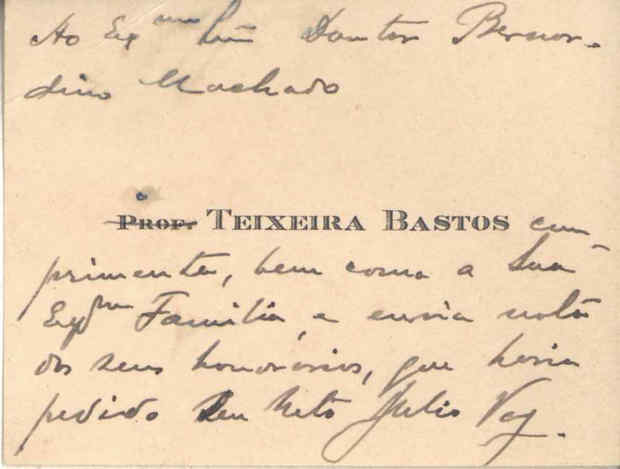 Ao Ex.mo Snr Doutor Bernar-
dino Machado
Prof. TEIXEIRA BASTOS cum-
primenta, bem como a Sua
Exma Familia, e envia nota
dos seus honorários, que havia
pedido seu neto Julio Vaz.